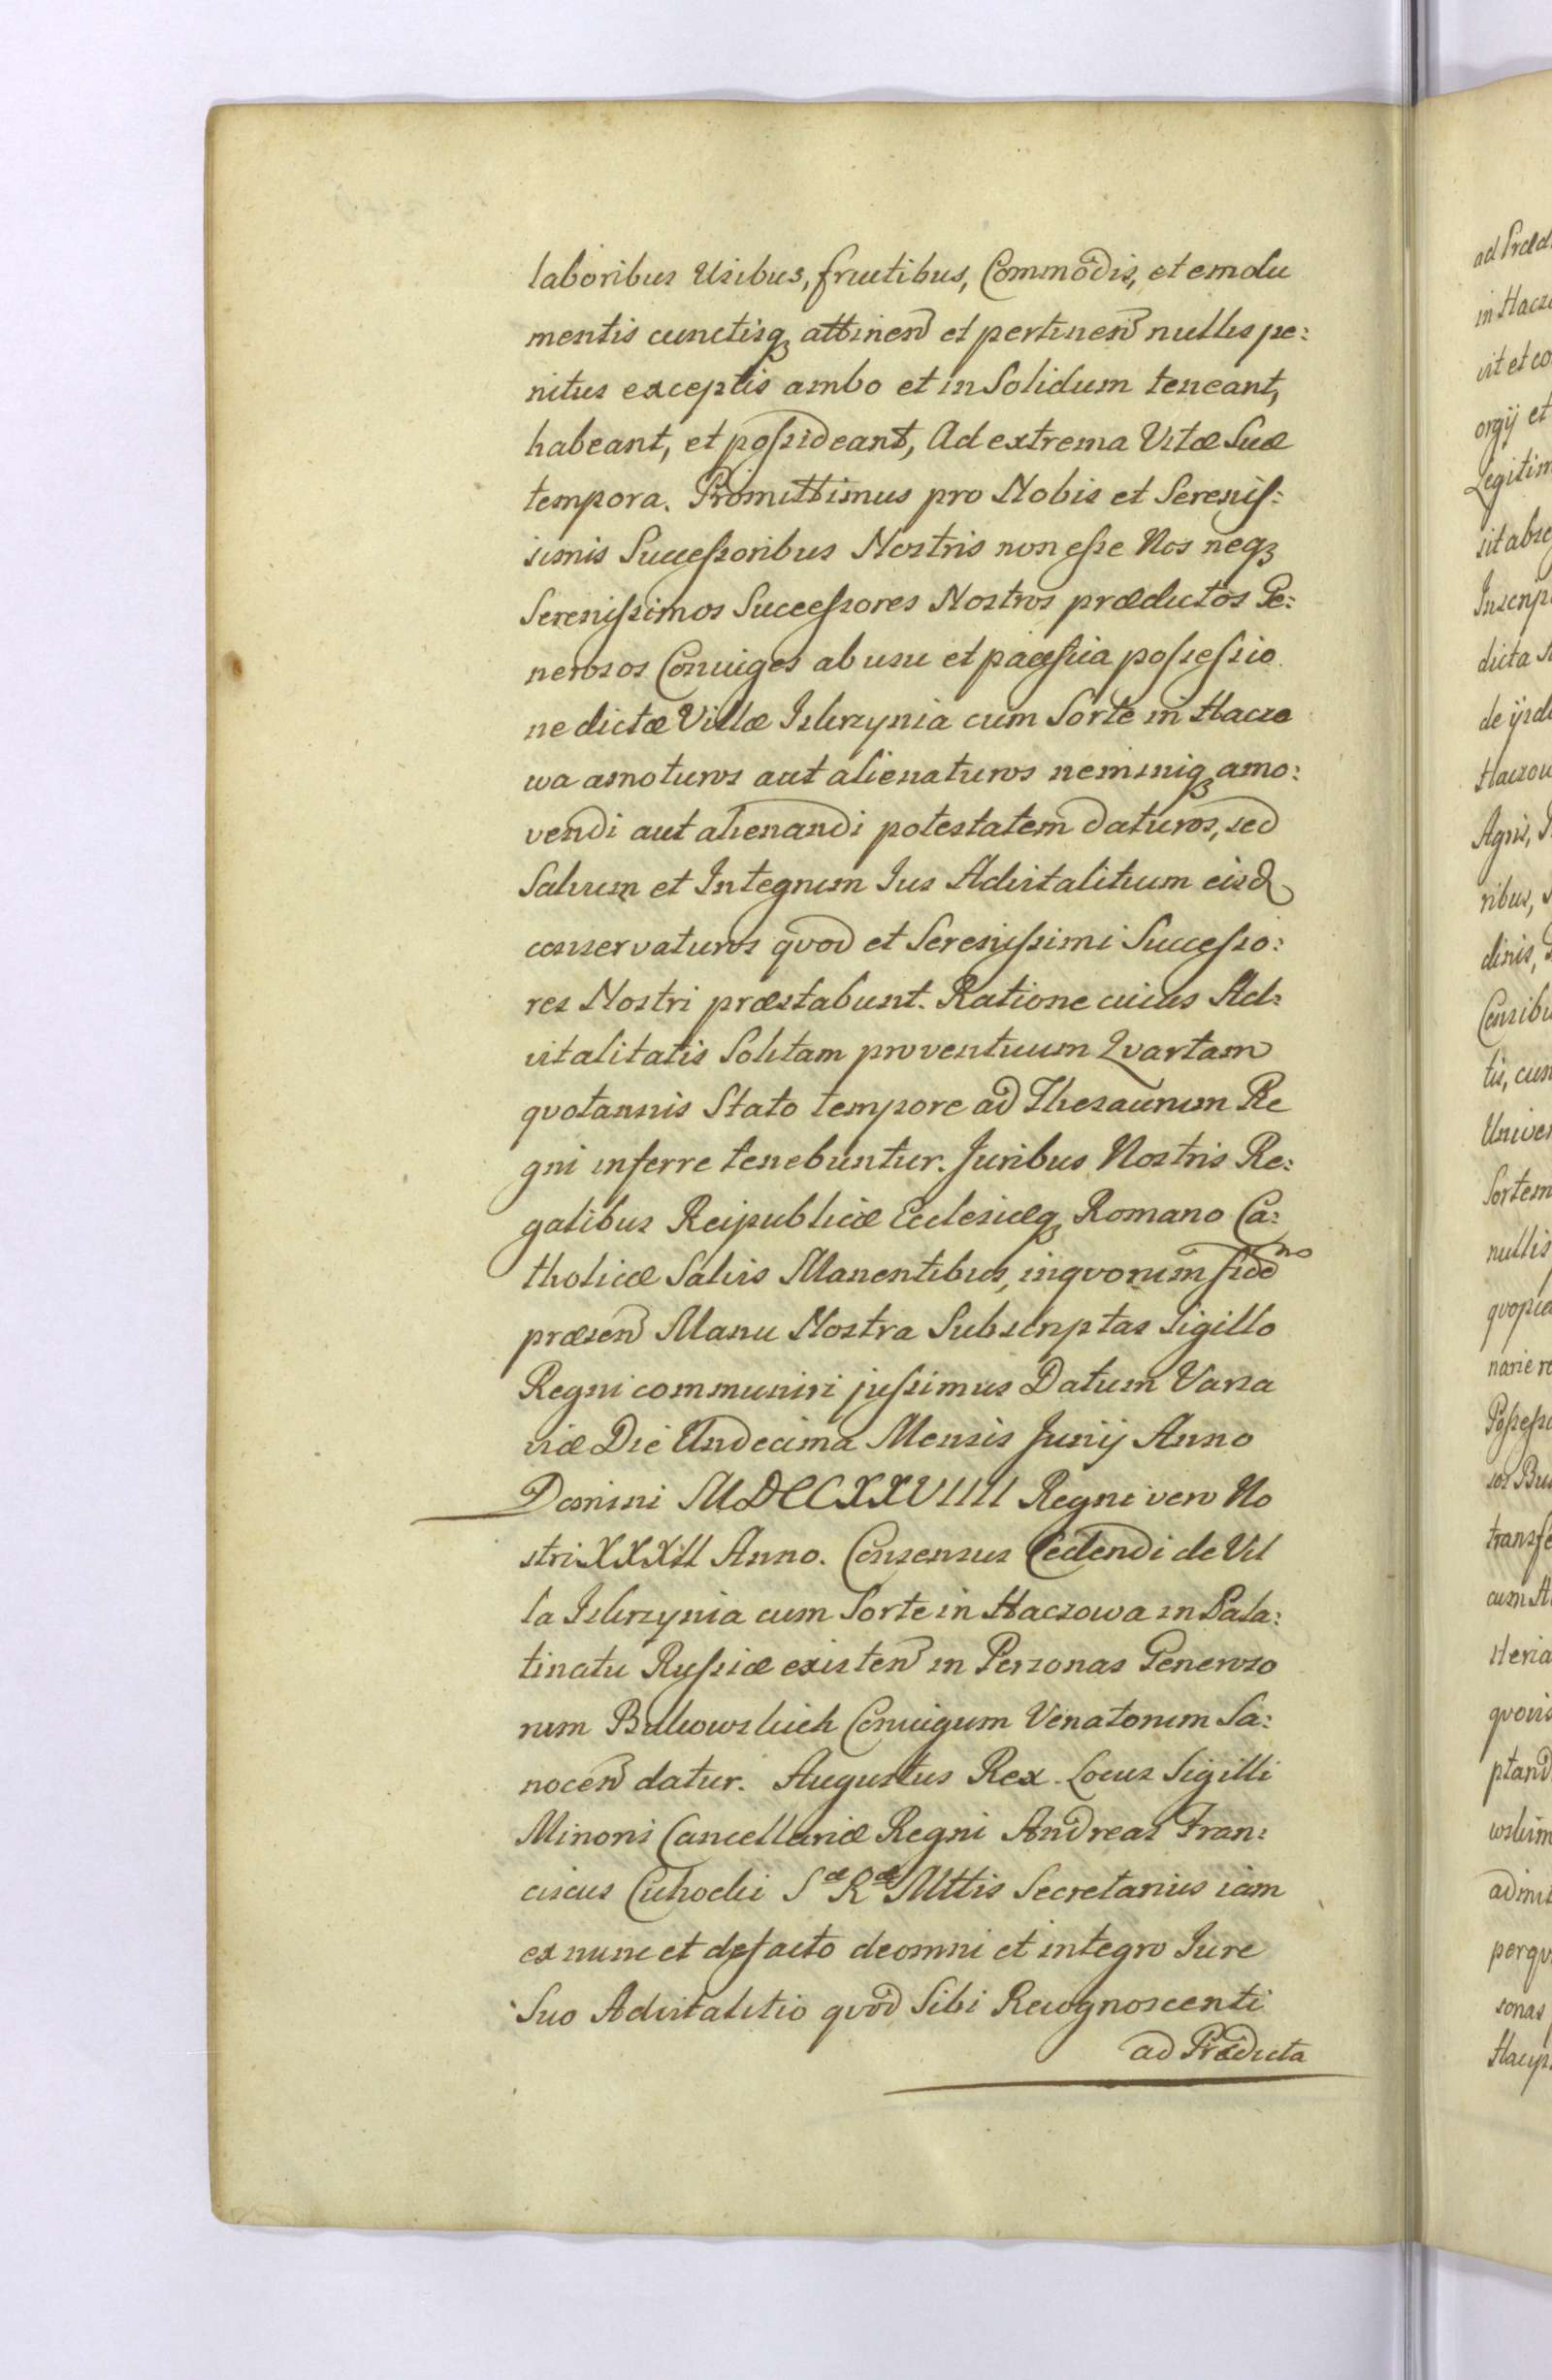 laboribus Usibus, fructibus, Commodis, et emolu
mentis cunctisq₃ attinen et pertinen nullis pe:
nitus exceptis ambo et in Solidum teneant,
habeant, et poſsideant, Ad extrema Vitæ Suæ
tempora. Promittimus pro Nobis et Sereniſ:
simis Succeſsoribus Nostris non eſse Nos neq₃
Sereniſsimos Succeſsores Nostros prædictos Ge:
nerosos Coniuges ab usu et pacifica poſseſsio
ne dictæ Villæ Iskrzynia cum Sorte in Haczo
wa amoturos aut alienaturos neminiq₃ amo:
vendi aut alienandi potestatem daturos, sed
Salvum et Integrum Ius Advitalitium eisd
conservaturos quod et Sereniſsimi Succeſso:
res Nostri præstabunt. Ratione cuius Ad:
vitalitatis Solitam proventuum Quartam
quotannis Stato tempore ad Thesaurum Re
gni inferre tenebuntur. Juribus Nostris Re:
galibus Reipublicæ Ecclesiæq₃ Romano Ca:
tholicæ Salvis Manentibus, in quorum fidem
præsen Manu Nostra Subscriptas Sigillo
Regni communiri juſsimus Datum Varsa
viæ Die Undecima Mensis Junij Anno
Domini MDCCXXVIIII Regni vero No
stri XXXII Anno. Consensus Cedendi de Vil
la Iskrzynia cum Sorte in Haczowa in Pala:
tinatu Ruſsiæ existen in Personas Generoso
rum Bukowskich Coniugum Venatorum Sa:
nocen datur. Augustus Rex. Locus Sigilli
Minoris Cancellariæ Regni Andreas Fran:
ciscus Cichocki Sæ Ræ Mttis Secretarius iam
ex nunc et de facto de omni et integro Iure
Suo Advitalitio quod Sibi Recognoscenti
ad Prædicta
ad Præd
in Hacz
vit et co
orgij et
Legitim
sit absq
Inscrip
dicta
de ijsd
Haczow
Agris,
ribus,
dinis,
Censibu
tis, cun
Univer
Sortem
nullis
narie re
Poſseſs
sos Bu
transfe
cum H
steria
quovis
ptand
wskim
admit
per qu
sonas